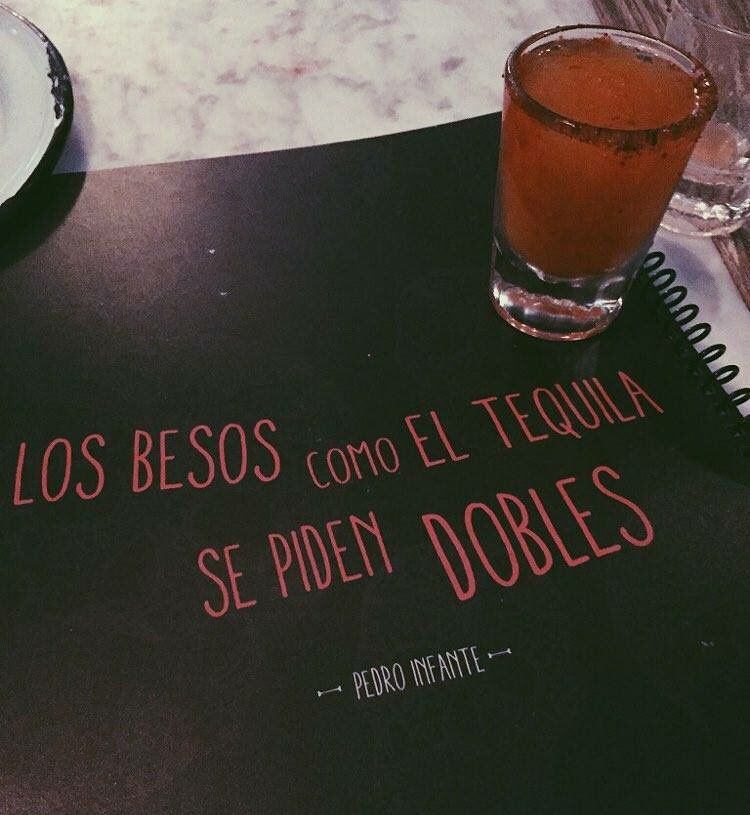 LOS BESOS COMO EL TEQUILA
SE PIDEN DOBLES
PEDRO INFANTE